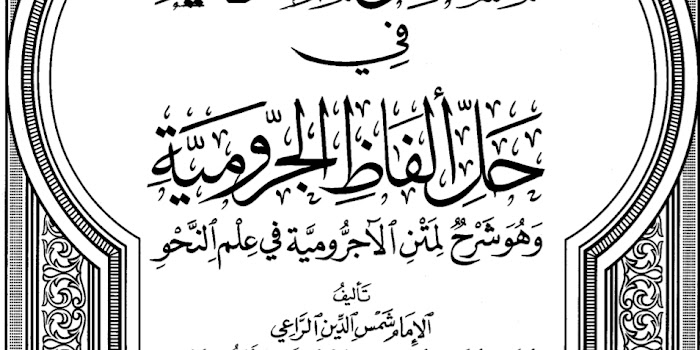 في
حَلِّ أَلْفَاظِ الجَرُّومِيَّةِ
وَهُوَ شَرْحٌ لِمَتْنِ الآجُرُّومِيَّة فِي عِلْمِ النَّحْوِ
تَأليفُ
الإِمَام شَمْسِ الدِّينِ الرَّاعِي